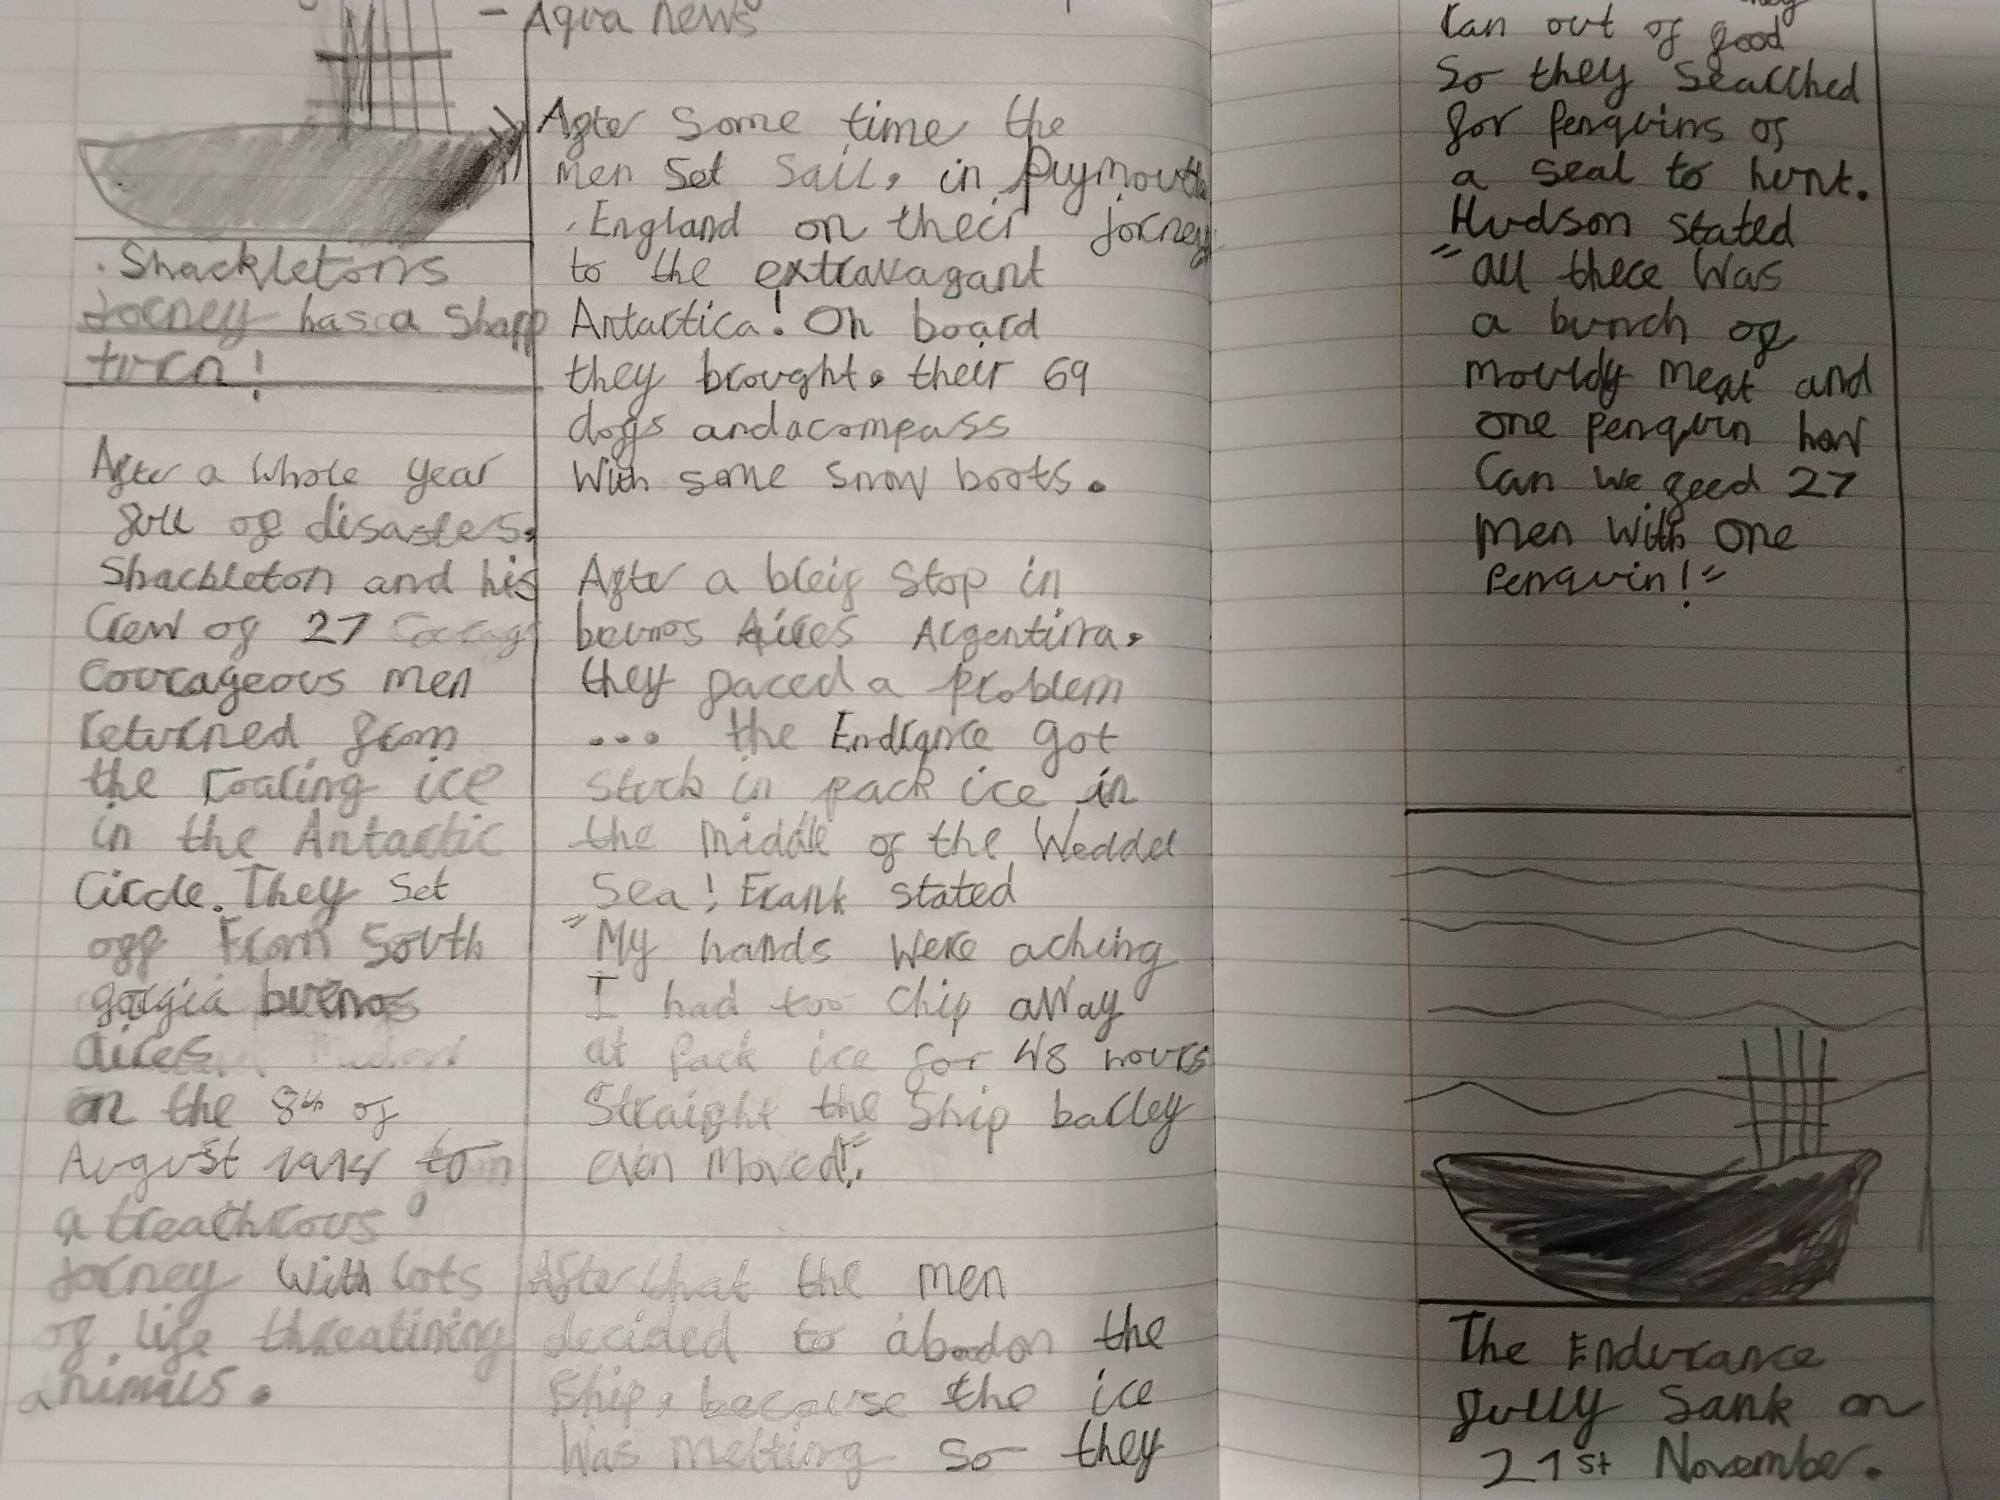 - Aqua news
Shackletons
Jorney has a sharp
turn!
After a whole year
full of disasters,
Shackleton and his
Crew of 27
Courageous men
returned from
the roaring ice
in the Antartic
Circle. They set
off From South
gorgia buenos
Aires
on the 8th of
August 1914 to
a treathrous
Jorney with lots
of life threatining
animals.
After some time the
men set sail, in Plymouth
, England on their jorney
to the extravagant
Antartica! On board
they brought, their 69
dogs andacompass
with some snow boots.
After a breif stop in
beunos Aires Argentina,
they faced a problem
... the Endrance got
stuck in pack ice in
the middle of the Weddel
Sea! Frank stated
"My hands were aching
I had too chip away
at pack ice for 48 hours
Straight the ship barley
even moved!"
After that the men
decided to abadon the
ship, because the ice
was melting so they
ran out of food
So they searched
for penquins or
a seal to hunt.
Hudson stated
"all there was
a bunch of
mouldy meat and
one penquin how
can we feed 27
men with one
penquin!"
The Endurance
fully sank on
21st November.